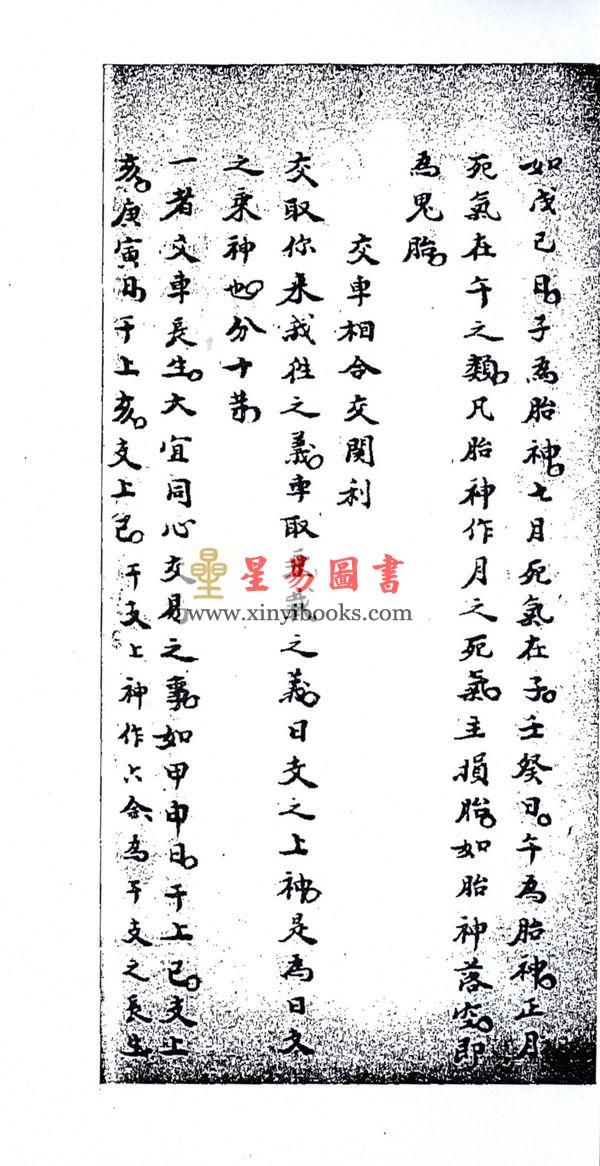 如戊己日子為胎神七月死氣在子壬癸日午為胎神正月
死氣在午之類凡胎神作月之死氣主損胎如胎神落空即
為鬼胎
交車相合交関利
交取你来我往之義車取之義日支之上神是為日支
之乘神也分十
一者交車長生大宜同心交易之事如甲申日干上巳支上
亥庚寅日干上亥支上巳干支上神作六合為干支之長生
星易圖書
www.xinyibooks.com